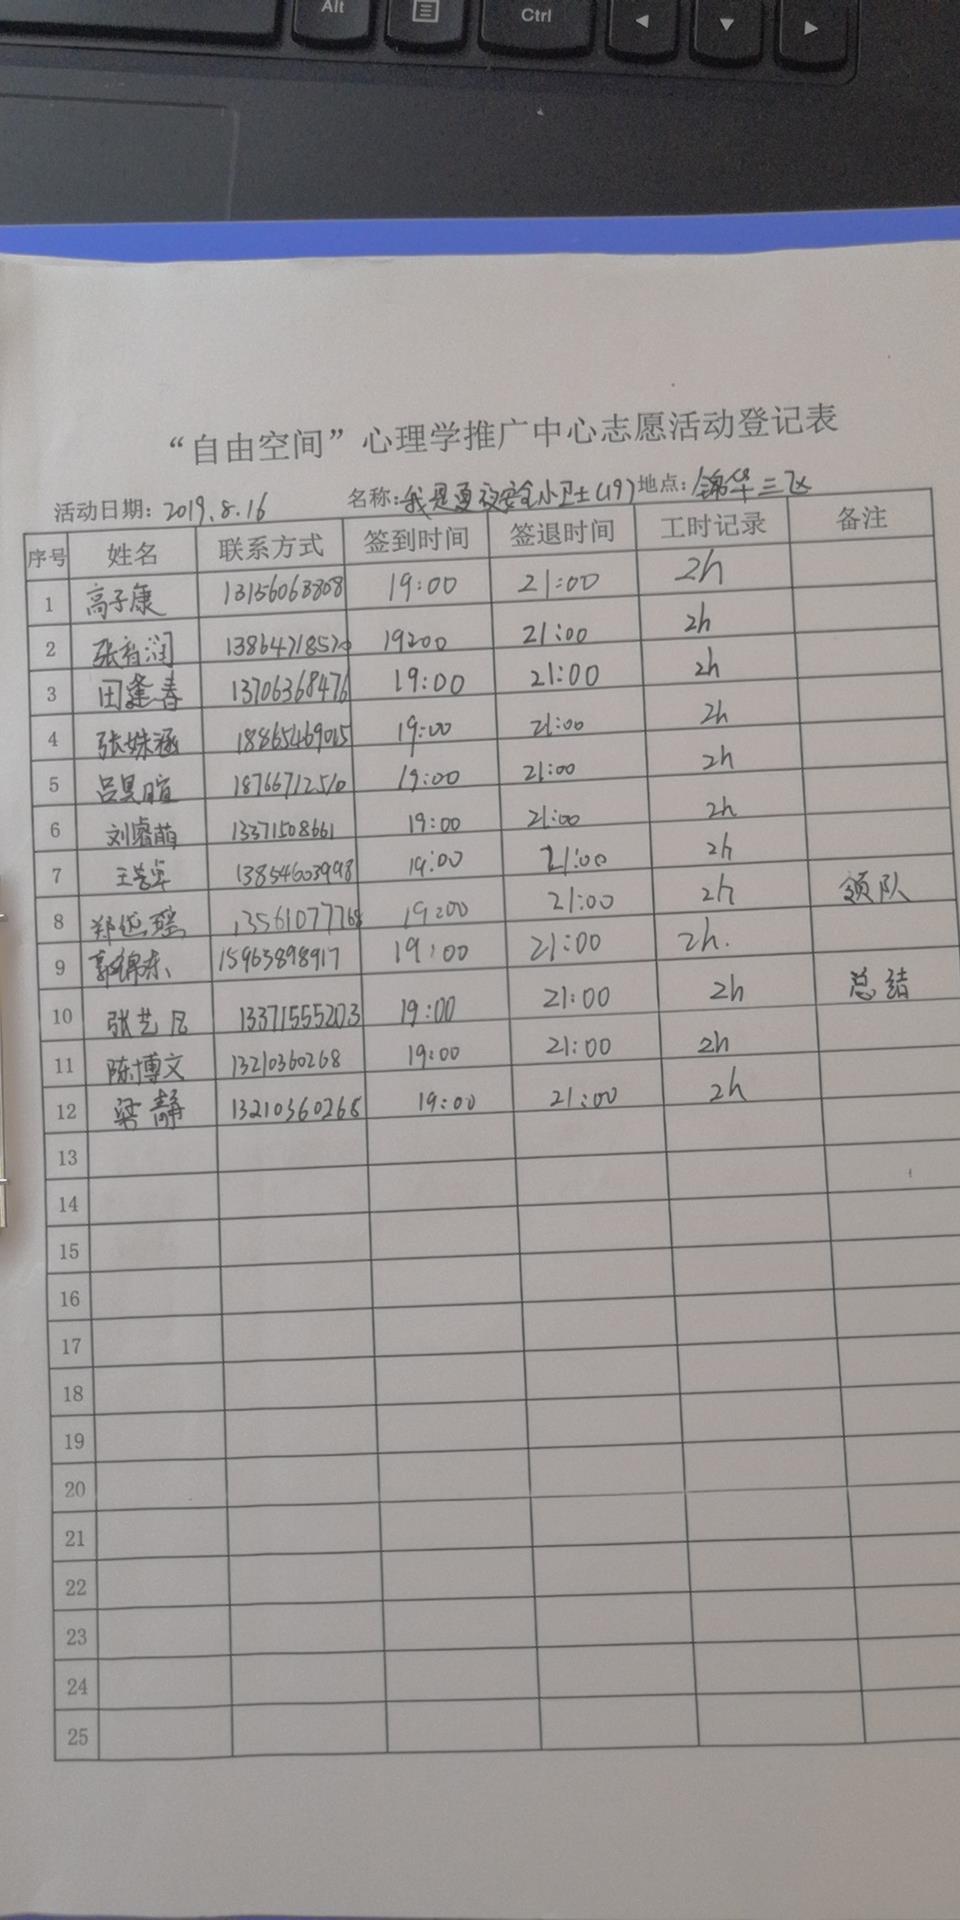 Alt
Ctrl
“自由空间”心理学推广中心志愿活动登记表
活动日期：2019.8.16 名称：我是夏夜安全小卫士(19) 地点：锦华三飞
序号 姓名 联系方式 签到时间 签退时间 工时记录 备注
1 高子康 13156063808 19:00 21:00 2h
2 张 润 13864718570 19:00 21:00 2h
3 田逢春 13706368476 19:00 21:00 2h
4 张姝涵 18865469015 19:00 21:00 2h
5 吕昊暄 18766712510 19:00 21:00 2h
6 刘睿萌 13371508661 19:00 21:00 2h
7 王 13854603998 19:00 21:00 2h
8 郑 瑶 13561077768 19:00 21:00 2h 领队
9 郭锦东 15963898917 19:00 21:00 2h.
10 张艺凡 13371555203 19:00 21:00 2h 总结
11 陈博文 13210360268 19:00 21:00 2h
12 梁静 13210360268 19:00 21:00 2h
13
14
15
16
17
18
19
20
21
22
23
24
25